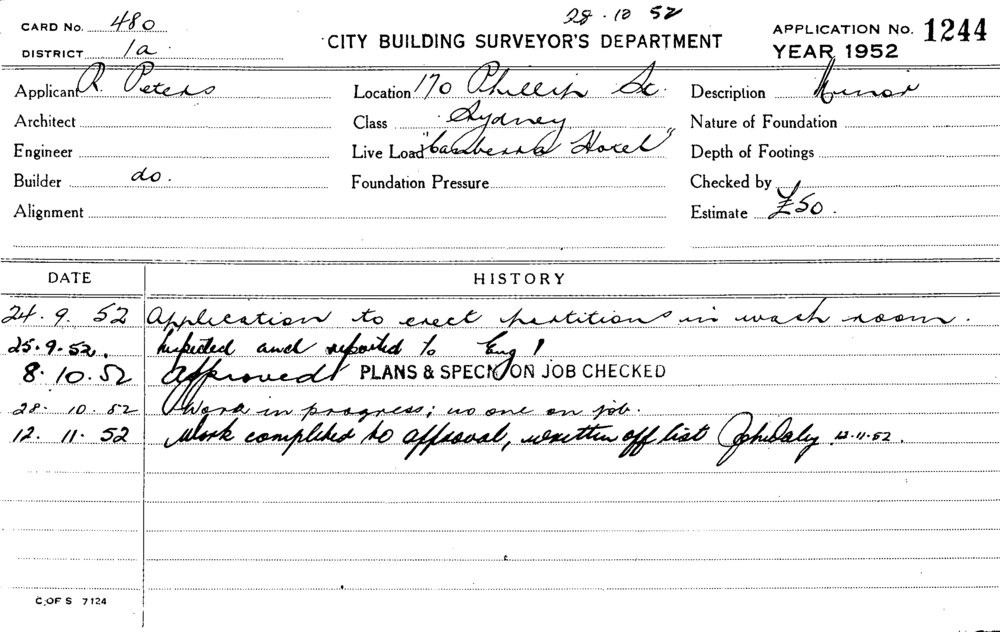 28·10 52
CARD No. 480
CITY BUILDING SURVEYOR'S DEPARTMENT
APPLICATION No. 1244
DISTRICT 1a
YEAR 1952
Applicant R. Peters
Location 170 Phillip St.
Description Minor
Architect
Class Sydney
Nature of Foundation
Engineer
Live Load "Canberra Hotel"
Depth of Footings
Builder do.
Foundation Pressure
Checked by
Alignment
Estimate £50.
DATE
HISTORY
24·9. 52 Application to erect partitions in wash room.
25·9·52. Inspected and reported to Eng
8·10·52 Approved PLANS & SPECN ON JOB CHECKED
28·10·52 Work in progress; no one on job.
12·11·52 Work completed to approval, written off list John Daly 12·11·52.
C. OF S 7124